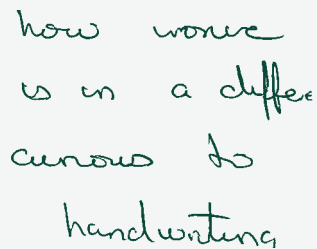 how
is in a diffe
curious to
handwriting